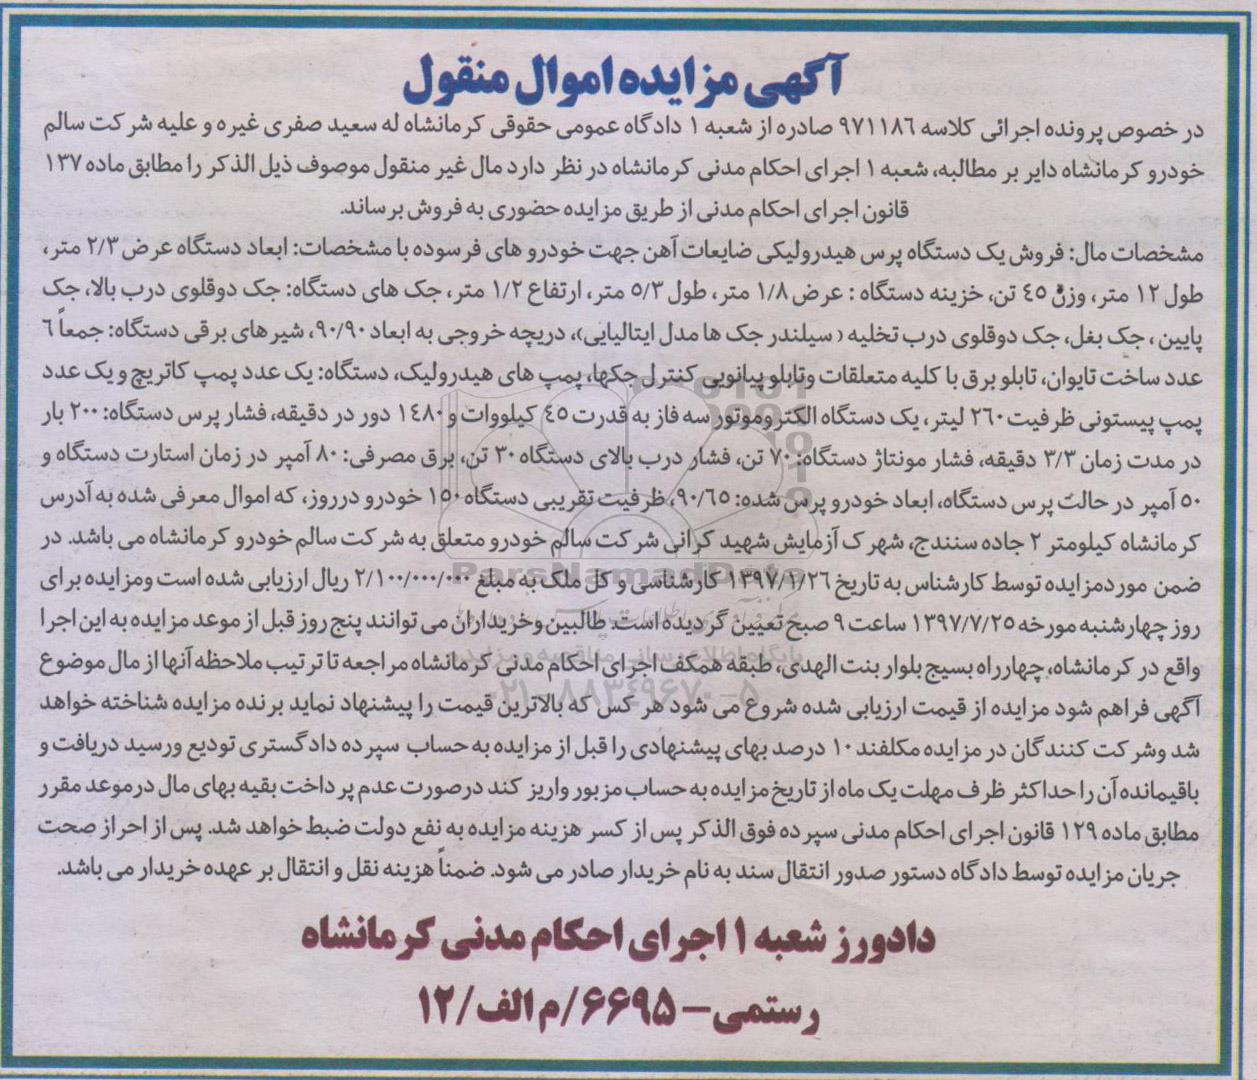 آگهی مزایده اموال منقول
در خصوص پرونده اجرائی کلاسه ۹۷۱۱۸۶ صادره از شعبه ۱ دادگاه عمومی حقوقی کرمانشاه له سعید صفری غیره و علیه شرکت سالم
خودرو کرمانشاه دایر بر مطالبه، شعبه ۱ اجرای احکام مدنی کرمانشاه در نظر دارد مال غیر منقول موصوف ذیل الذکر را مطابق ماده ۱۳۷
قانون اجرای احکام مدنی از طریق مزایده حضوری به فروش برساند.
مشخصات مال: فروش یک دستگاه پرس هیدرولیکی ضایعات آهن جهت خودرو های فرسوده با مشخصات: ابعاد دستگاه عرض ۲/۳ متر،
طول ۱۲ متر، وزن ۴۵ تن، خزینه دستگاه : عرض ۱/۸ متر، طول ۵/۳ متر، ارتفاع ۱/۲ متر، جک های دستگاه: جک دوقلوی درب بالا، جک
پایین ، جک بغل، جک دوقلوی درب تخلیه (سیلندر جک ها مدل ایتالیایی)، دریچه خروجی به ابعاد ۹۰/۹۰، شیرهای برقی دستگاه: جمعاً ۶
عدد ساخت تایوان، تابلو برق با کلیه متعلقات وتابلو پیانویی کنترل جکها، پمپ های هیدرولیک، دستگاه: یک عدد پمپ کاتریج و یک عدد
پمپ پیستونی ظرفیت ۲۶۰ لیتر، یک دستگاه الکتروموتور سه فاز به قدرت ۴۵ کیلووات و ۱۴۸۰ دور در دقیقه، فشار پرس دستگاه: ۲۰۰ بار
در مدت زمان ۳/۳ دقیقه، فشار مونتاژ دستگاه: ۷۰ تن، فشار درب بالای دستگاه ۳۰ تن، برق مصرفی: ۸۰ آمپر در زمان استارت دستگاه و
۵۰ آمپر در حالت پرس دستگاه، ابعاد خودرو پرس شده: ۹۰/۶۵، ظرفیت تقریبی دستگاه ۱۵۰ خودرو درروز، که اموال معرفی شده به آدرس
کرمانشاه کیلومتر ۲ جاده سنندج، شهرک آزمایش شهید کرانی شرکت سالم خودرو متعلق به شرکت سالم خودرو کرمانشاه می باشد. در
ضمن موردمزایده توسط کارشناس به تاریخ ۱۳۹۷/۱/۲۶ کارشناسی و کل ملک به مبلغ ۲/۱۰۰/۰۰۰/۰۰۰ ریال ارزیابی شده است ومزایده برای
روز چهارشنبه مورخه ۱۳۹۷/۷/۲۵ ساعت ۹ صبح تعیین گردیده است. طالبین وخریداران می توانند پنج روز قبل از موعد مزایده به این اجرا
واقع در کرمانشاه، چهارراه بسیج بلوار بنت الهدی، طبقه همکف اجرای احکام مدنی کرمانشاه مراجعه تا ترتیب ملاحظه آنها از مال موضوع
آگهی فراهم شود مزایده از قیمت ارزیابی شده شروع می شود هر کس که بالاترین قیمت را پیشنهاد نماید برنده مزایده شناخته خواهد
شد وشرکت کنندگان در مزایده مکلفند ۱۰ درصد بهای پیشنهادی را قبل از مزایده به حساب سپرده دادگستری تودیع ورسید دریافت و
باقیمانده آن را حداکثر ظرف مهلت یک ماه از تاریخ مزایده به حساب مزبور واریز کند درصورت عدم پرداخت بقیه بهای مال درموعد مقرر
مطابق ماده ۱۲۹ قانون اجرای احکام مدنی سپرده فوق الذکر پس از کسر هزینه مزایده به نفع دولت ضبط خواهد شد. پس از احراز صحت
جریان مزایده توسط دادگاه دستور صدور انتقال سند به نام خریدار صادر می شود. ضمناً هزینه نقل و انتقال بر عهده خریدار می باشد.
دادورز شعبه ۱ اجرای احکام مدنی کرمانشاه
رستمی – ۶۶۹۵/م الف/۱۲
ParsNamadData
۰۲۱-۸۸۳۴۹۶۷۰-۵